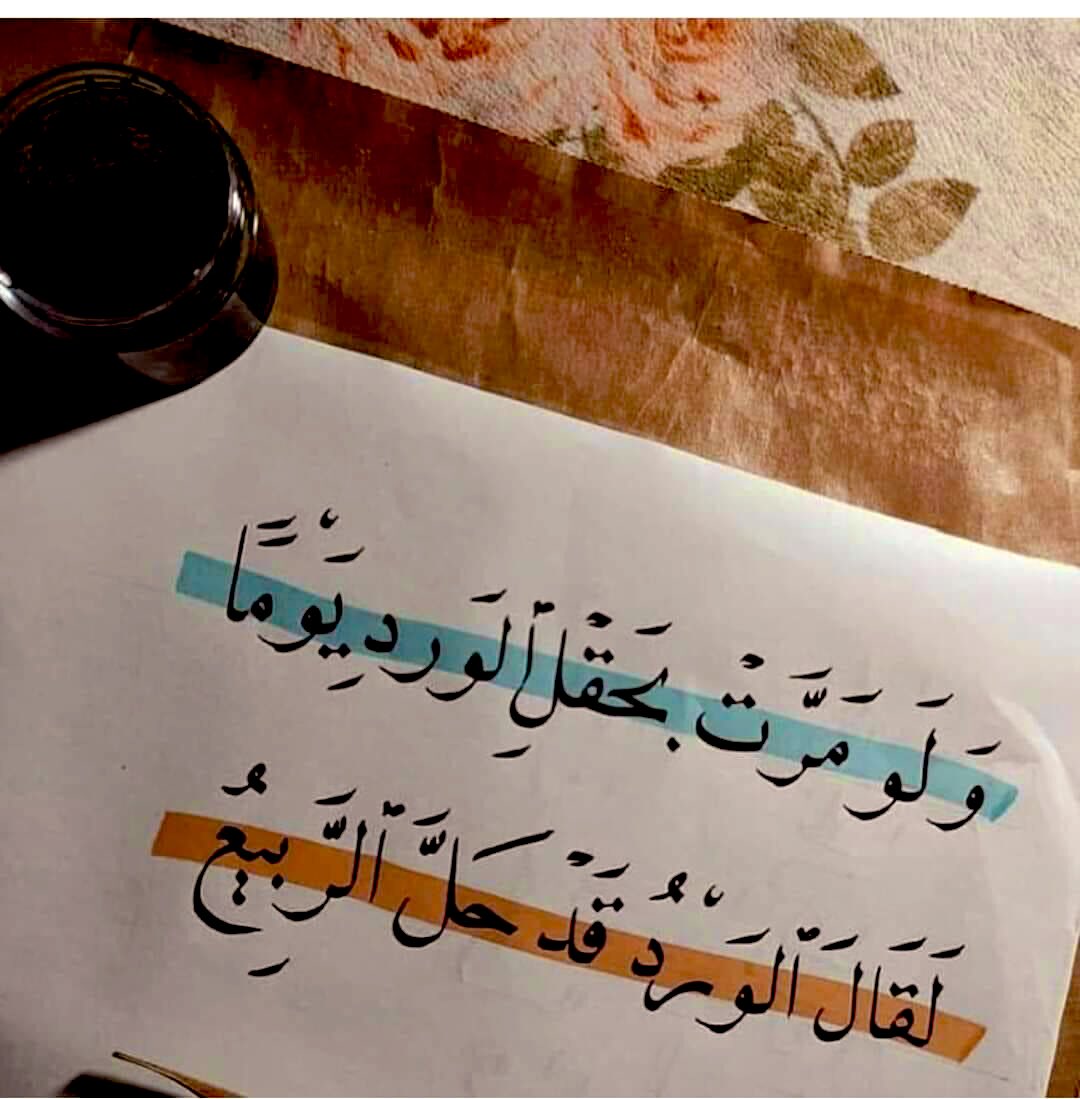 وَلَو مَرَّتْ بَحَقْلِ ٱلوَردِ يَوْمًا
لَقَالَ ٱلوَرْدُ قَدْ حَلَّ ٱلرَّبِيعُ